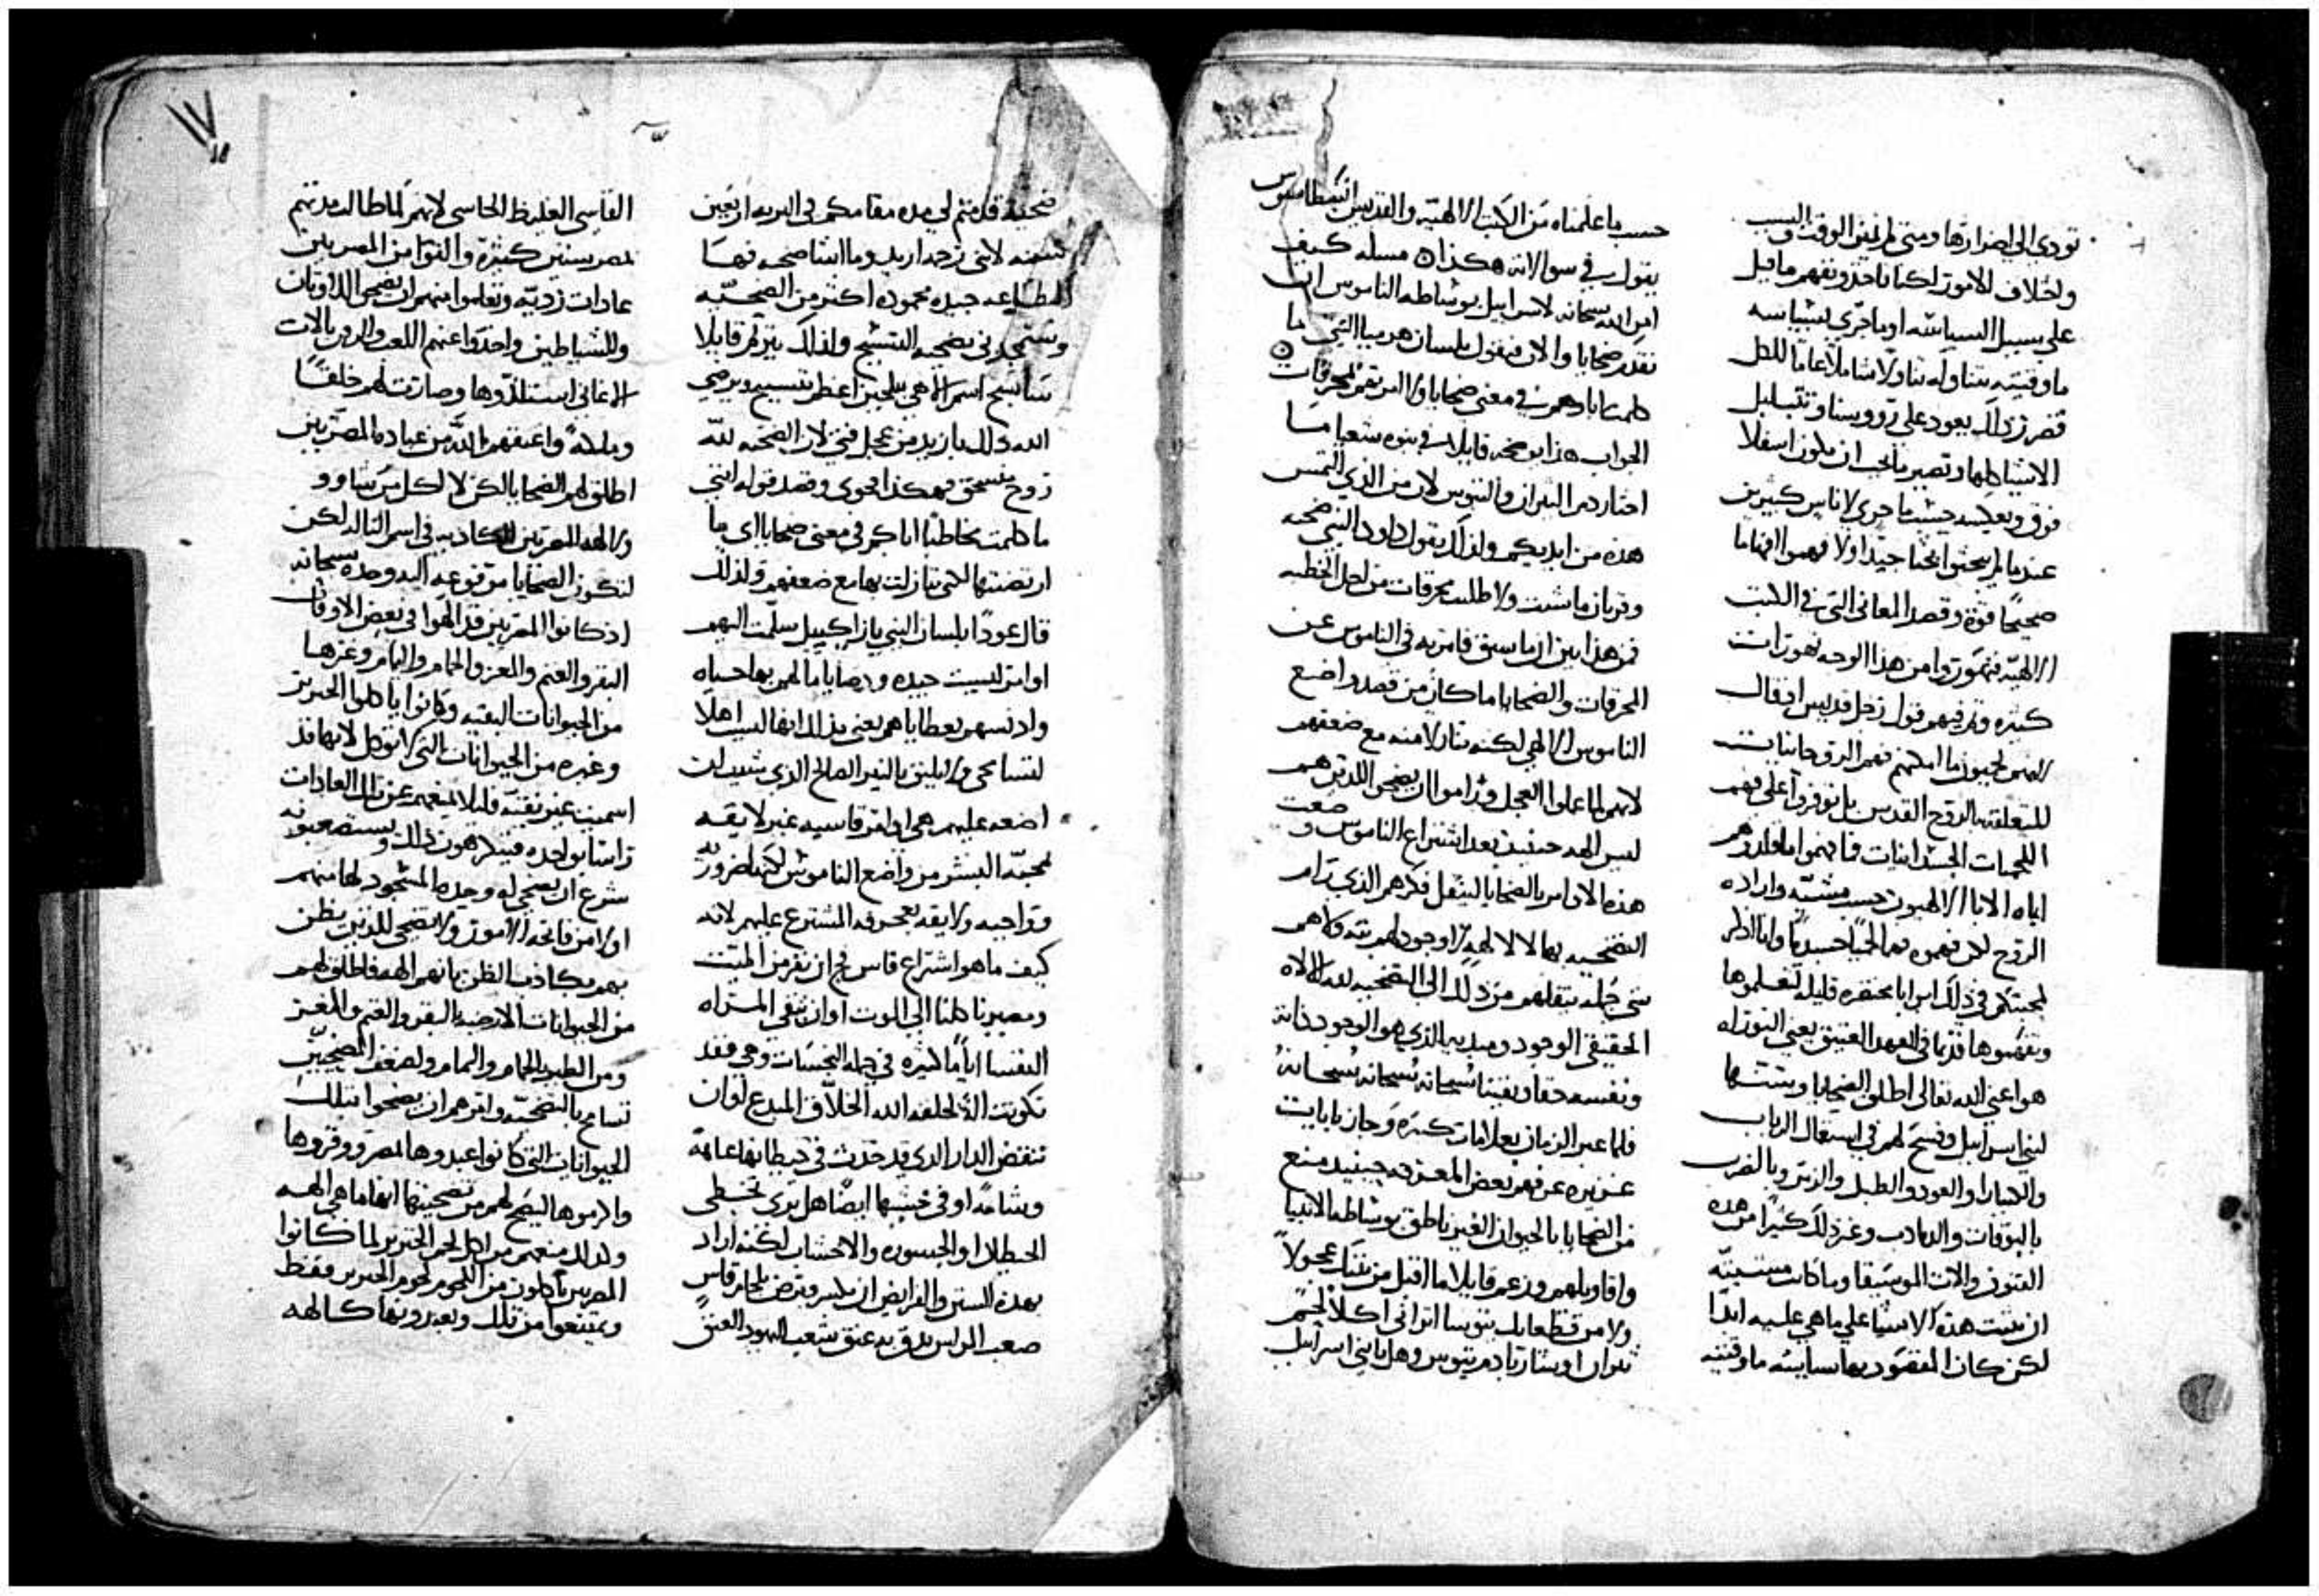 تودي الي اضرارها ومتي لم نميز الوقت والسبب
واختلاف الامور لكنا ناخذ ونفهم ما قيل
علي سبيل السياسه او ما جري بسياسه
ما وقتيه نتناوله تناولا شاملا عاما للكل
فضرر ذلك يعود علي رووسنا وتتبلبل
الاشيا كلها وتصير ما يجب ان يكون اسفلا
فوق وبعكسه حسبما جري لاناس كثيرين
عندما لم يبحثوا بحثا جيدا ولا فهموا افهاما
صحيحا قوة وقصد المعاني التي في الكتب
الالهيه فتهوروا من هذا الوجه تهورات
كثيره وتم فيهم قول رجل قديس اذ قال
انهم يحبون ما امكنهم فهم الروحانيات
المتعلقه بالروح القدس بل توفروا علي فهم
اللحميات الجسدانيات فافهموا ما قلدوهم
اياه الابا الالهيون حسب مشيه واراده
الروح لكن فهموه فهما لحميا جسديا وانا اذكر
لمحبتكم في ذلك اسرايا محتقره قليله لتعلموها
وتفهموها قديما في العهد العتيق يعني التوراه
هو اعني الله تعالي اطلق الضحايا وسننها
لبني اسراييل وفسح لهم في استعمال الرباب
والكنارا والعود والطبل والزمر وبالضرب
بالبوقات والملاعب وغير ذلك كثيرا من هذه
الفنون والات الموسيقا وما كانت مشيته
ان تثبت هذه الاشيا علي ما هي عليه ابدا
لكن كان المقصود بها سياسه ما وقتيه
حسب ما علمناه من الكتب الالهيه والقديس انسطاسيوس
يقول في سوالاته هكذا مسله كيف
امر الله سبحانه لاسراييل بوساطه الناموس ان
نقدم ضحايا والان فيقول بلسان هرميا النبي ما
كلمت اباوهم في معني ضحايا ولا امرتهم بمحرقات
الجواب هذا ابن ضحه قايلا في نبوه شعيا ما
اختار دم الثيران والتيوس لان من الذي التمس
هذه من ايديكم ولذلك يقول داود النبي ضحيه
وقربان ما شيت ولا طلبت محرقات من اجل الخطيه
فمن هذا يبين ان ما سبق فامر به في الناموس عن
المحرقات والضحايا ما كان من قصد واضع
الناموس الالهي لكنه تنازلا منه مع ضعفهم
لانهم لما عملوا العجل وراموا ان يضحوا للذين هم
ليس الهه حينيذ بعد اشتراع الناموس وضعت
هذه الاوامر بالضحايا لينقل فكرهم الذي رام
التضحيه بها لالالهه لا وجود لهم بته ولا هم
شي جمله بنقلهم من ذلك الي التضحيه لله الاله
الحقيقي الوجود ومبديه الذي هو الوجود ذاته
ونفسه حقا ويقينا سبحانه سبحانه سبحانه
فلما عبر الزمان بعلامات كثيره وجازبابات
غزيره عرفهم بعض المعرفه حينيذ منع
من الضحايا بالحيوان الغير ناطق بوساطه الانبيا
واقاويلهم وزعم قايلا ما اقبل من بيتك عجولا
ولا من قطعانك تيوسا اتراني اكل لحم
ثيران او شاربا دم تيوس وهل يا بني اسراييل
ضحيه قدمتم لي مده مقامكم في البريه اربعين
سنه لانني رحمه اريد وما اشا ضحيه فهما
الطايعه جيده محموده اكثر من الضحيه
وتستمجدني بضحيه التسبيح ولذلك يترنم قايلا
ساسبح اسم الاهي بتلحين اعظمه بتسبيح ويرضي
الله ذلك بازيد من عجل فتي لان الضحيه لله
روح منسحق فهكذا فحوي وقصد قوله انني
ما كلمت مخاطبا اباكم في معني ضحايا اي ما
ارتضيتها لكني تنازلت بها مع ضعفهم ولذلك
قال عودا بلسان النبي يازاكييل سلمت اليهم
اوامر ليست جيده ووصايا ما لهم بها حياه
وادنسهم بعطاياهم يعني بذلك انها ليست اهلا
لتسامحي ولا يليق بالنير الصالح الذي شيت ان
اضعه عليهم هي اوامر قاسيه غير لايقه
لمحبه البشر من واضع الناموس لكنها ضروريه
وواجبه ولايقه بعجرفه المشترع عليهم لانه
كيف ما هو اشتراع قاس فج ان نفر من الميت
ومصيرنا كلنا الي الموت او ان تبقي المراه
النفسا اياما كثيره في جمله النجسات وهي فقد
تكونت اله لخلقه الله الخلاق المبدع لاوان
تنقض الدار الذي قد حدث في حيطانها عاهه
وشامه او في خشبها ايضا هل تري تخطي
الحيطان او الجسوره والاخشاب لكنه اراد
بهذه السنن والفرايض ان يكسر ويرض بلجام قاس
صعب المراس يدق به عنق شعب اليهود العنق
القاسي العليظ الجاسي لانهم لما طالت مدتهم
بمصر سنين كثيرة والفوا من المصريين
عادات رديه وتعلموا منهم ان يضحوا للاوثان
وللشياطين واخذوا عنهم اللعب والزمر بالات
الاغاني استلذوها وصارت لهم خلقا
وملكه واعتقهم الله من عباده المصريين
اطلق لهم الضحايا لكن لا لكل من شاوو
ولا لهه المصريين الكاذبه في اسم الله لكن
لتكون الضحايا مرفوعه اليه وحده سبحانه
اذ كانوا المصريين قد الهوا في بعض الاوقات
البقر والغنم والمعز والحمام واليمام وغيرها
من الحيوانات النقيه وكانوا ياكلوا الخنزير
وغيره من الحيوانات التي لا توكل لانها قد
اسميت غير نقيه فليلا يمنعهم عن تلك العادات
راسا بواحده فينكرهون ذلك ويستصعبونه
شرع ان يضحي له وحده المسجود لها منهم
اولا من فاتحه الامور ولا يضحي للذين يظن
بهم بكاذب الظن بانهم الهه فاطلق لهم
من الحيوانات الارضيه البقر والغنم والمعز
ومن الطير الحمام واليمام ولضعف المضحيين
تسامح بالتضحيه وامرهم ان يضحوا بتلك
الحيوانات التي كانوا عبدوها بمصر ووقروها
واكرموها ليتضح لهم من تضحيتها انها ما هي الهه
ولذلك منعهم من اكل لحم الخنزير لما كانوا
المصريين ياكلون من اللحوم لحوم الخنزير فقط
ويمتنعوا من تلك ويعبدونها كالهه